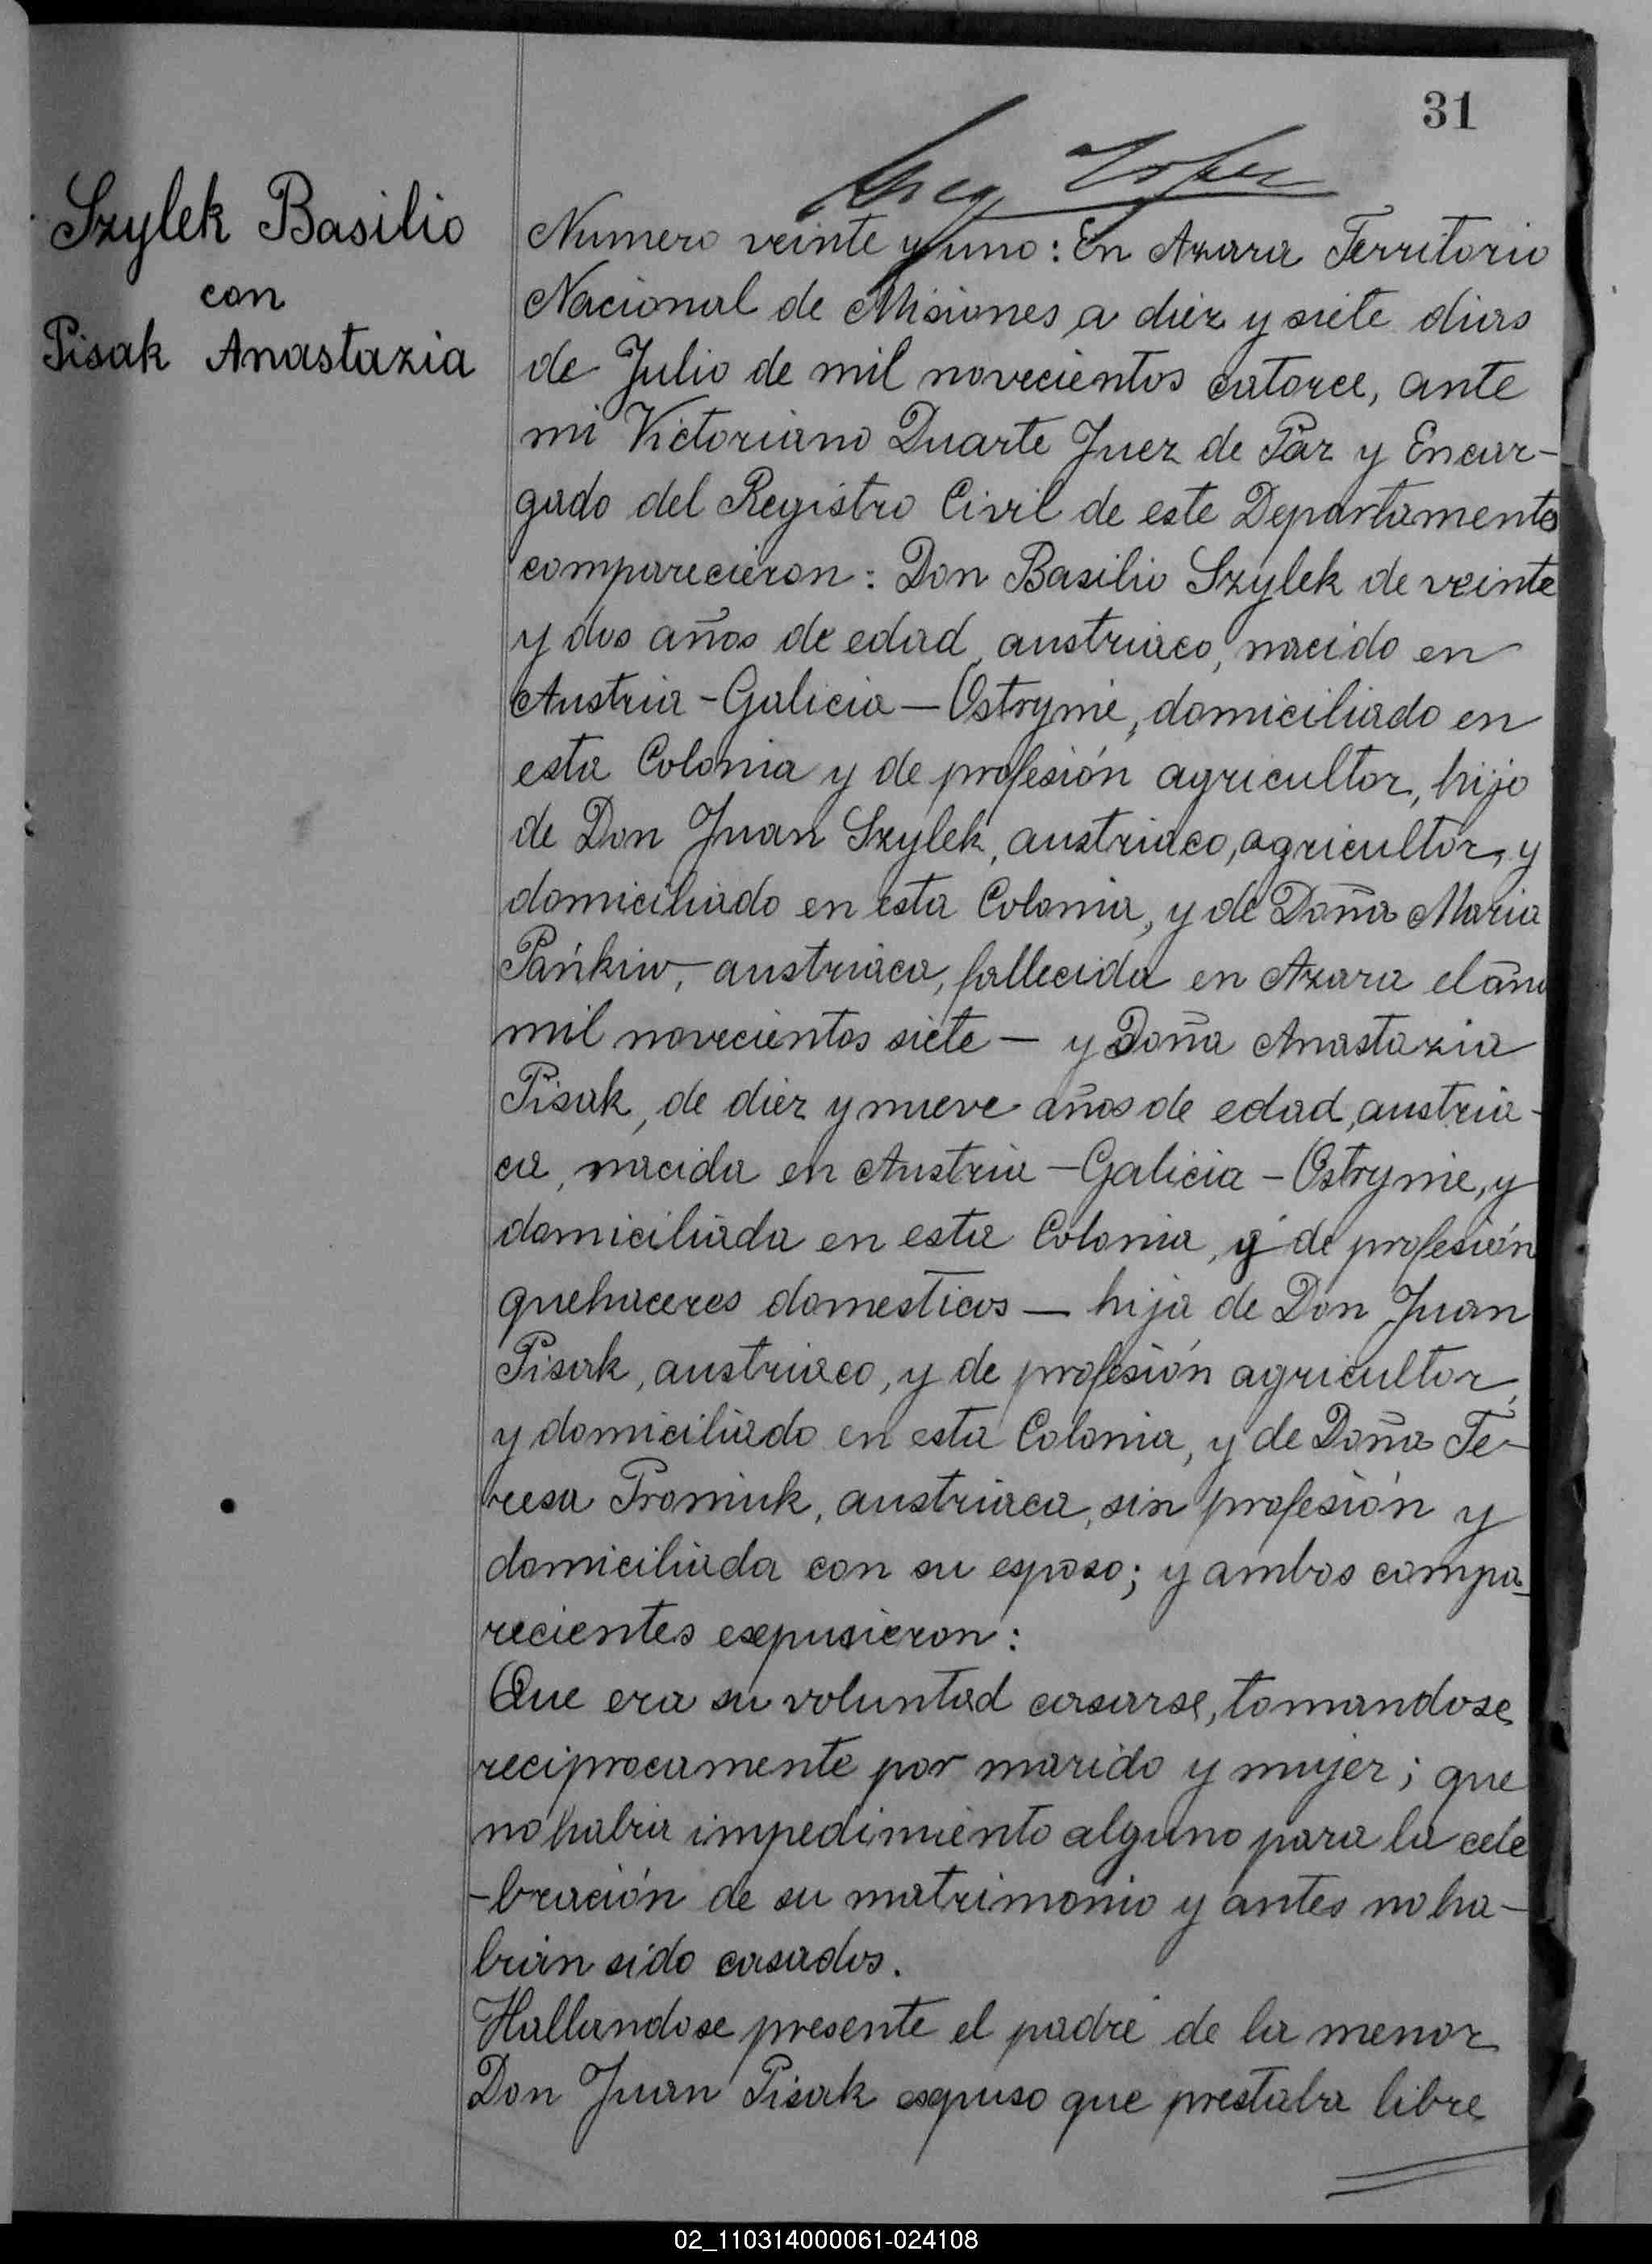 31
Szylek Basilio
con
Pisak Anastazia
Numero veinte y uno: En Azara Territorio
Nacional de Misiones a diez y siete dias
de Julio de mil novecientos catorce, ante
mi Victoriano Duarte Juez de Paz y Encar-
gado del Registro Civil de este Departamento
comparecieron: Don Basilio Szylek de veinte
y dos años de edad, austriaco, nacido en
Austria - Galicia — Ostrynie, domiciliado en
esta Colonia y de profesión agricultor, hijo
de Don Juan Szylek, austriaco, agricultor, y
domiciliado en esta Colonia, y de Doña Maria
Pańkiw, austriaca, fallecida en Azara el año
mil novecientos siete — y Doña Anastazia
Pisak, de diez y nueve años de edad, austria-
ca, nacida en Austria - Galicia - Ostrynie, y
domiciliada en esta Colonia, y de profesión
quehaceres domesticos — hija de Don Juan
Pisak, austriaco, y de profesión agricultor,
y domiciliado en esta Colonia, y de Doña Te-
resa Promiuk, austriaca, sin profesión y
domiciliada con su esposo; y ambos compa-
recientes expusieron:
Que era su voluntad casarse, tomandose
reciprocamente por marido y mujer; que
no habia impedimiento alguno para la cele
-bración de su matrimonio y antes no ha-
bian sido casados.
Hallandose presente el padre de la menor
Don Juan Pisak espuso que prestaba libre
02_110314000061-024108